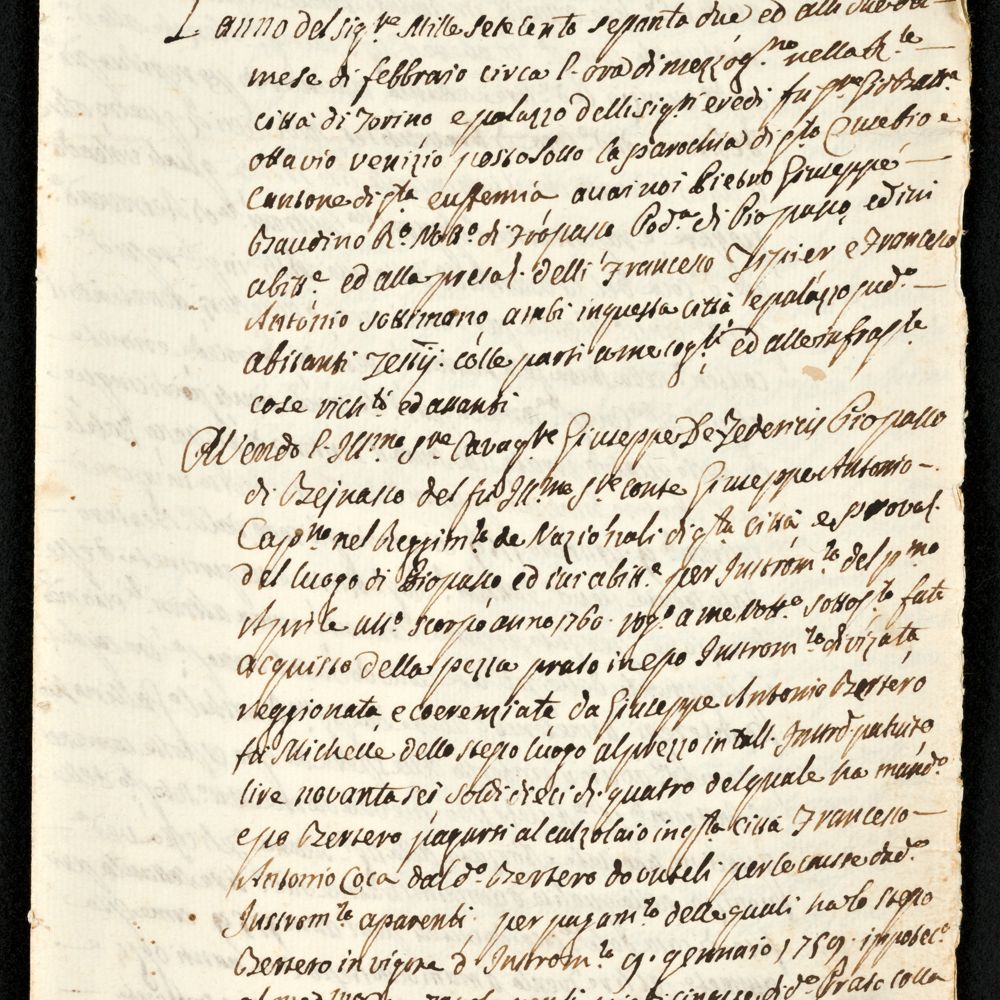 L'anno del Sig.re Mille settecento settanta due ed alli due del
mese di febbraio circa l'ora di mezzog.no nella R.le
città di Torino e palazzo delli Sig.ri eredi fu Gio Batta
ottavio posto sotto la parochia di S.to Eusebio e
Cantone di S.ta euffemia avanti noi Pietro Giuseppe
Gaudino R.o Not.o di Piopasso Pod.a di Piopasso, ed ivi
abitt.e ed alla presa. delli Francesco e Francesco
Antonio sottimano ambi in questa città e palazzo sud.o
abitanti Testij. colle parti a me cog.te ed alle infras.te
cose rich.ti ed avanti
Avendo l'Ill.mo S.re Cavag.re Giuseppe De Federicis Piopasso
di Bejnasco del fu Ill.mo S.re conte Giuseppe Antonio
Cap.no nel Reggim.to de Nazionali di q.ta città e proval.
del luogo di Piopasso ed ivi abitt.e per Instrom.to del p.mo
Aprile ult.o scorso anno 1760. rog.o a me Nott.o sottos.to fatt
acquisto della pezza prato in epo Instrom.to divizata
reggionata e coerenziata da Giuseppe Antonio Bertero
fu Michele dello stepo luogo al prezzo in tall. Instro. patuito
live novanta sei soldi dieci d. quatro del quale ha mand.o
epo Bertero pagarsi al calzolaio in q.ta città Francesco
Antonio Coca dal d.o Bertero dovuteli per le cause dad.o
Instrom.to aparenti per pagam.to delle quali ha lo stepo
Bertero in vigore d'Instrom.to 9. gennaio 1759. impotec.o
d.o Prato colla